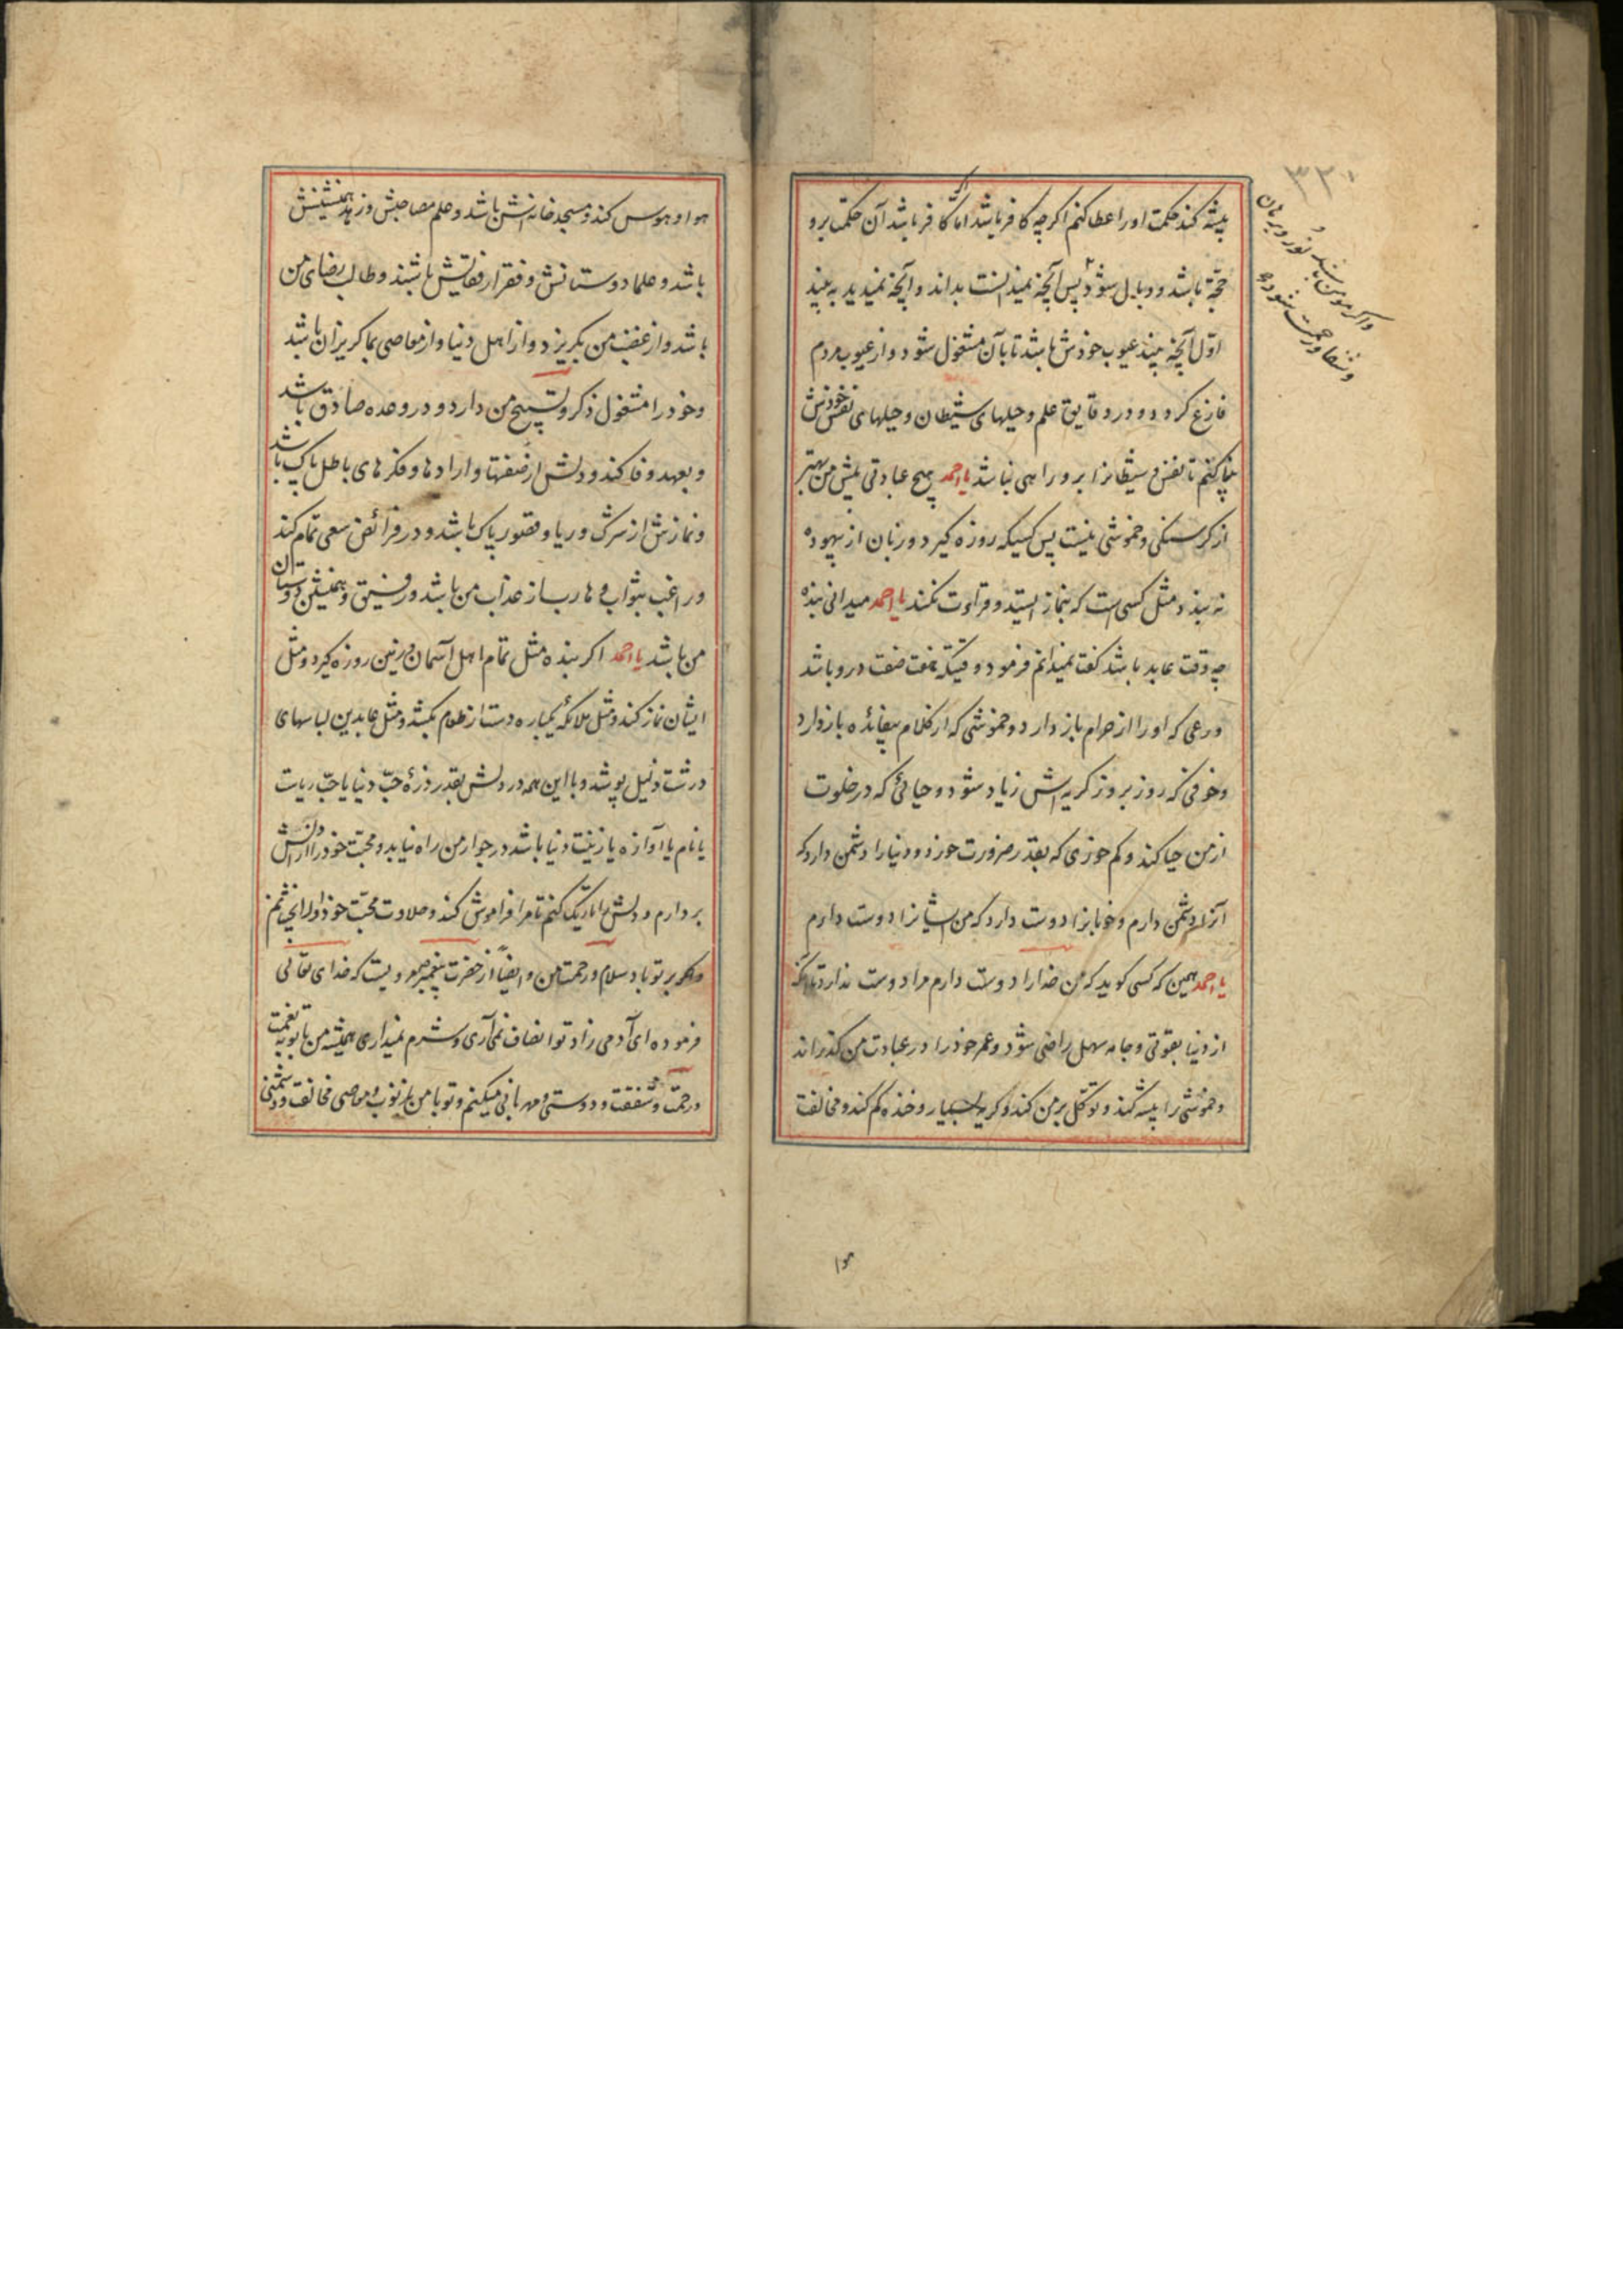 پیشه کند حکمت اورا عطا کنم اکرچه کافر باشد اما اکر کافر باشد آن حکمت برو
حجّة باشد و وبال شود پس آنچه نمیدانست بداند و آنچه نمیدید به بیند
اوّل آنچه بیند عیوب خودش باشد تا بآن مشغول شود و از عیوب مردم
فارغ کردد و در دقایق علم و حیلهای شیطان و حیلهای نفس خودش
بینا کنم تا نفس و شیطانرا برو راهی نباشد یا احمد هیچ عبادتی پیش من بهتر
از کرسنکی و خموشی نیست پس کسیکه روزه کیرد و زبان از بیهوده
نه بندد مثل کسی است که بنماز ایستد و قراءت نکند یا احمد میدانی بنده
چه وقت عابد باشد کفت نمیدانم فرمود وقتیکه هفت صفت درو باشد
ورعی که اورا از حرام باز دارد و خموشی که از کلام بیفائده باز دارد
و خوفی که روز بروز کریه اش زیاد شود و حیائی که در خلوت
از من حیا کند و کم خوری که بقدر ضرورت خورد و دنیا را دشمن دارد که
آنرا دشمن دارم و خوبانرا دوست دارد که من ایشانرا دوست دارم
یا احمد همین که کسی کوید که من خدا را دوست دارم مرا دوست ندارد تا آنکه
از دنیا بقوتی و جامه سهل راضی شود و عمر خود را در عبادت من کذراند
و خموشی را پیشه کند و توکّل بر من کند و کریه بسیار و خنده کم کند و مخالفت
۳۲۰
واکر مومن باشد نور و برهان
و شفا و رحمت شود
هوا
هوا و هوس کند و مسجد خانه اش باشد و علم مصاحبش و زهد همنشینش
باشد و علما دوستانش و فقرا رفقایش باشند و طالب رضای من
باشد و از غضب من بکریزد و از اهل دنیا و از معاصی بما کریزان باشد
و خود را مشغول ذکر و تسبیح من دارد و در وعده صادق باشد
و بعهد وفا کند و دلش از صفتها و ارادها و فکرهای باطل پاک باشد
و نمازش از شرک و ریا و قصور پاک باشد و در فرائض سعی تمام کند
و راغب بثواب و هارب از عذاب من باشد و رفیق و همنشین دوستان
من باشد یا احمد اکر بنده مثل تمام اهل آسمان و زمین روزه کیرد و مثل
ایشان نماز کند و مثل ملائکه یکباره دست از طعام بکشد و مثل عابدین لباسهای
درشت ذلیل پوشد و با این همه در دلش بقدر ذرّه حبّ دنیا یا حبّ ریاست
یا نام یا آوازه یا زینت دنیا باشد در جوار من راه نیابد و محبت خود را از دلش
بردارم و دلش را تاریک کنم تا مرا فراموش کند و حلاوت محبّت خود او را نچشانم
بر تو باد سلام و رحمت من و ایضاً از حضرت پیغمبر مرویست که خدای تعالی
فرموده ای آدمی زاد تو انصاف نمی آری و شرم نمیداری همیشه من با تو به نعمت
و رحمت و شفقت و دوستی و مهربانی میکنم و تو با من بذنوب و معاصی مخالفت و دشمنی